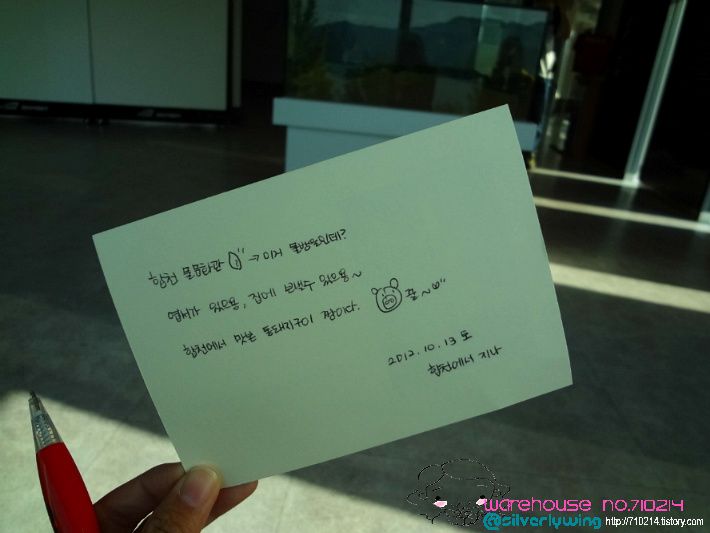 합천 물문화관 → 이거 물방울인데?
엽서가 있으용, 집에 보낼수 있으용~
합천에서 맛본 통돼지구이 짱이다. 꿀~
2012.10.13 토
합천에서 지나
warehouse no.710214
@silverlywing http://710214.tistory.com